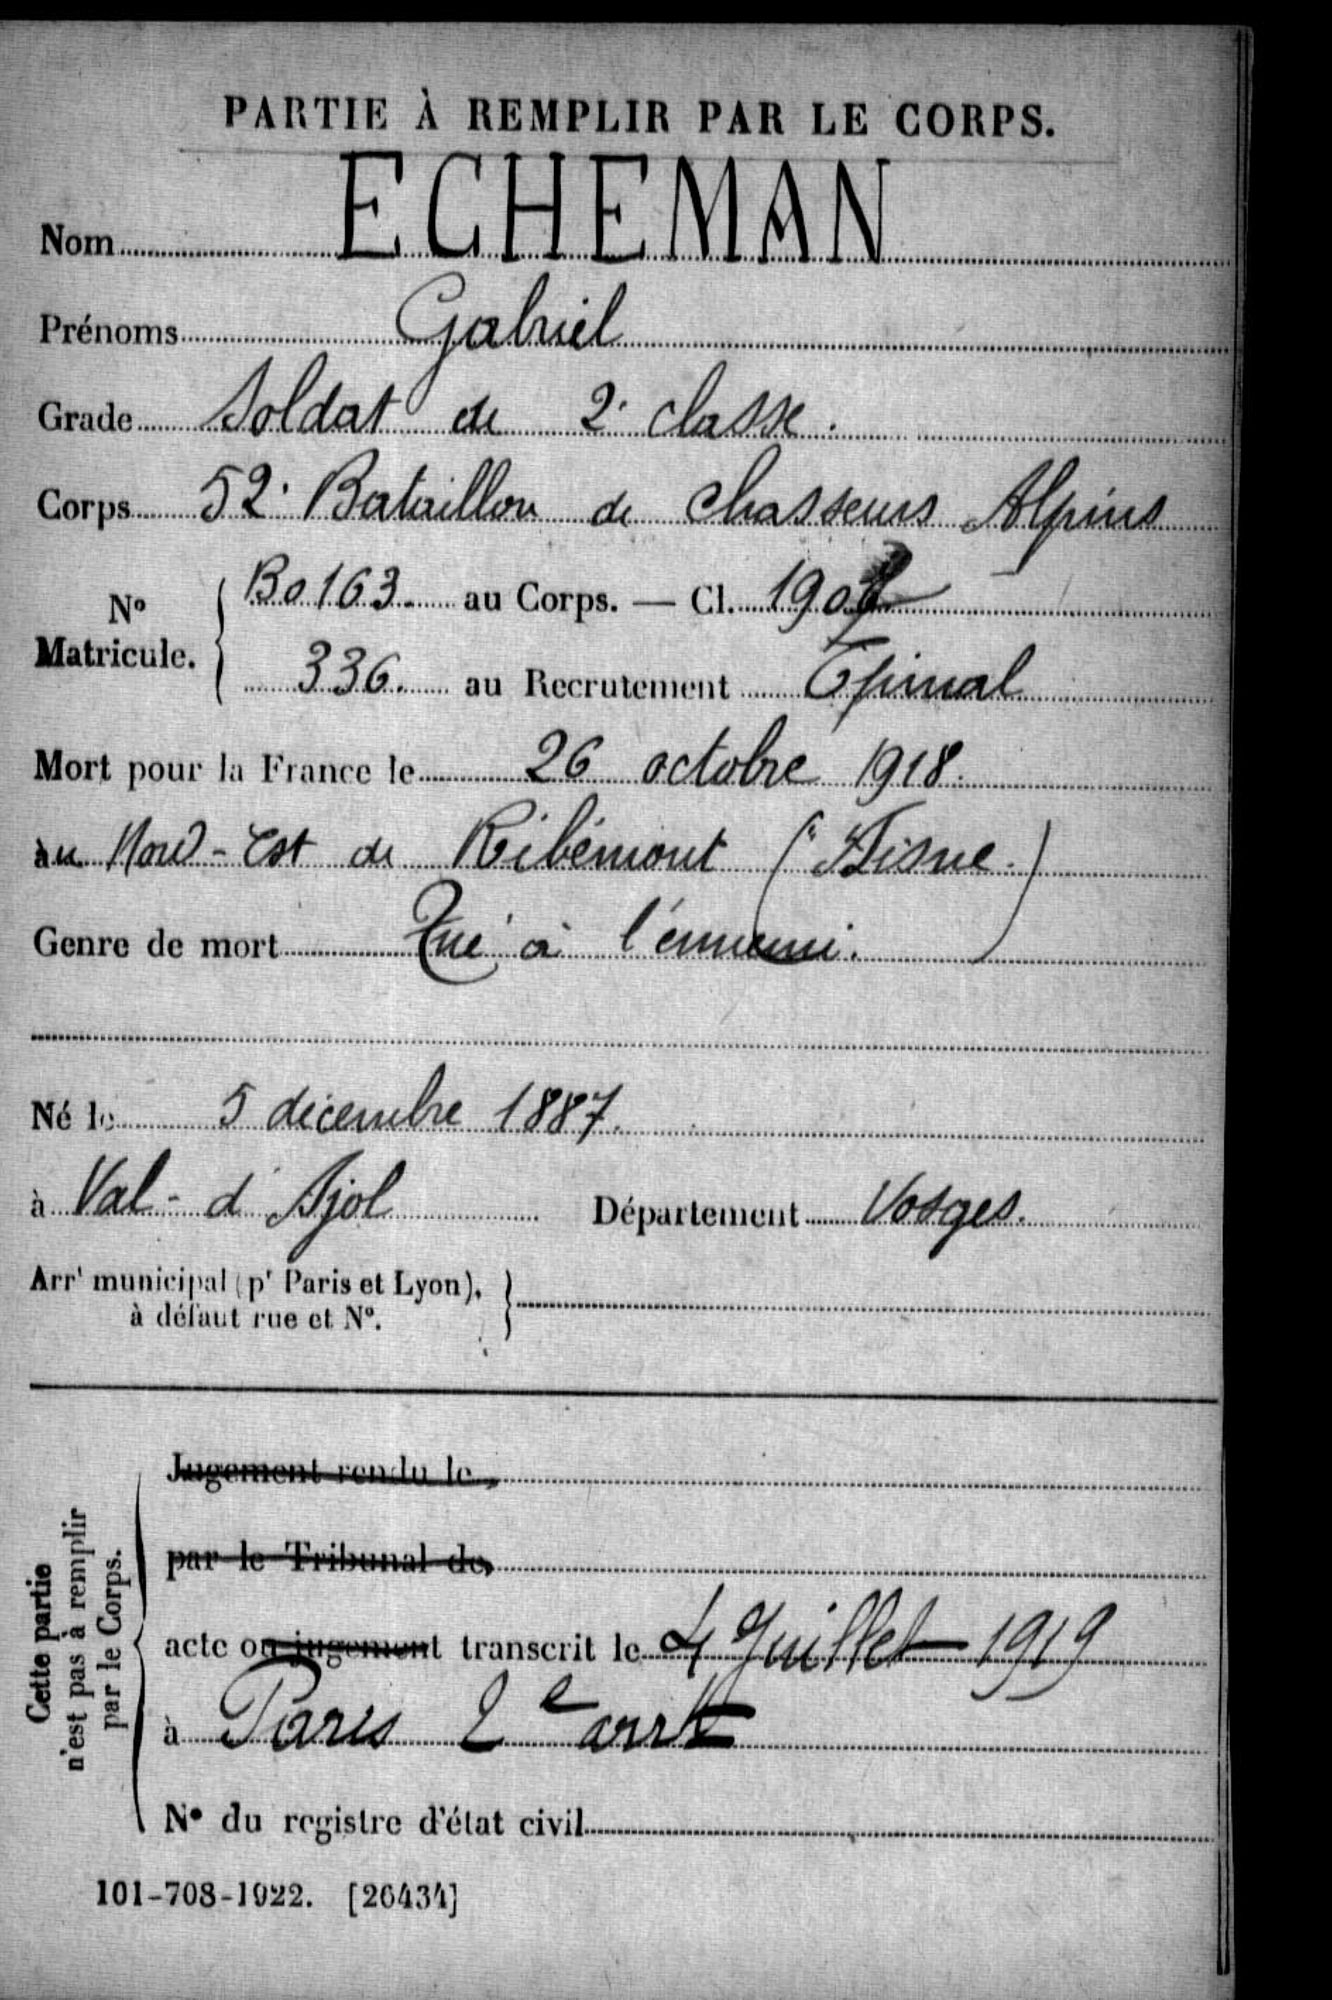 PARTIE À REMPLIR PAR LE CORPS.
Nom ECHEMAN
Prénoms Gabriel
Grade Soldat de 2e classe.
Corps 52e Bataillon de chasseurs Alpins
No Matricule. { Bo 163. au Corps. — Cl.
336. au Recrutement Epinal
Mort pour la France le 26 octobre 1918.
au Nord-Est de Ribémont (Aisne.)
Genre de mort Tué à l'ennemi.
Né le 5 décembre 1887.
à Val-d'Ajol Département Vosges.
Arrt municipal (pr Paris et Lyon), }
à défaut rue et No.
Cette partie
n'est pas à remplir
par le Corps.
Jugement rendu le
par le Tribunal de
acte ou jugement transcrit le 4 Juillet 1919
à Paris 2e arrt
No du registre d'état civil
101-708-1922. [26434]